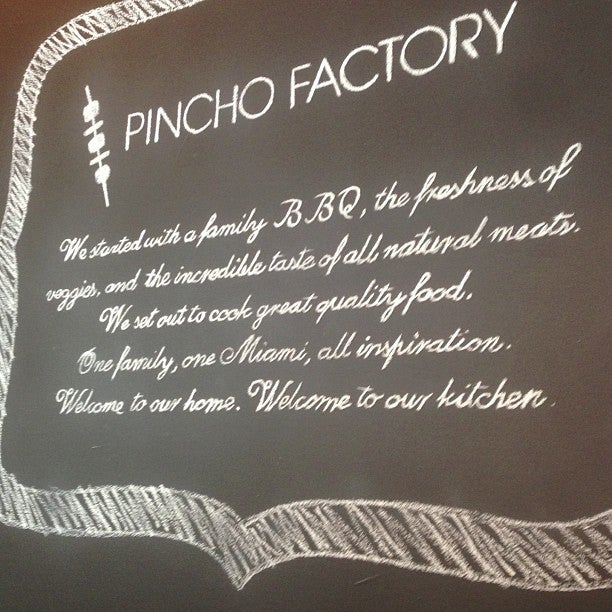 PINCHO FACTORY
We started with a family BBQ, the freshness of
veggies, and the incredible taste of all natural meats.
We set out to cook great quality food.
One family, one Miami, all inspiration.
Welcome to our home. Welcome to our kitchen.